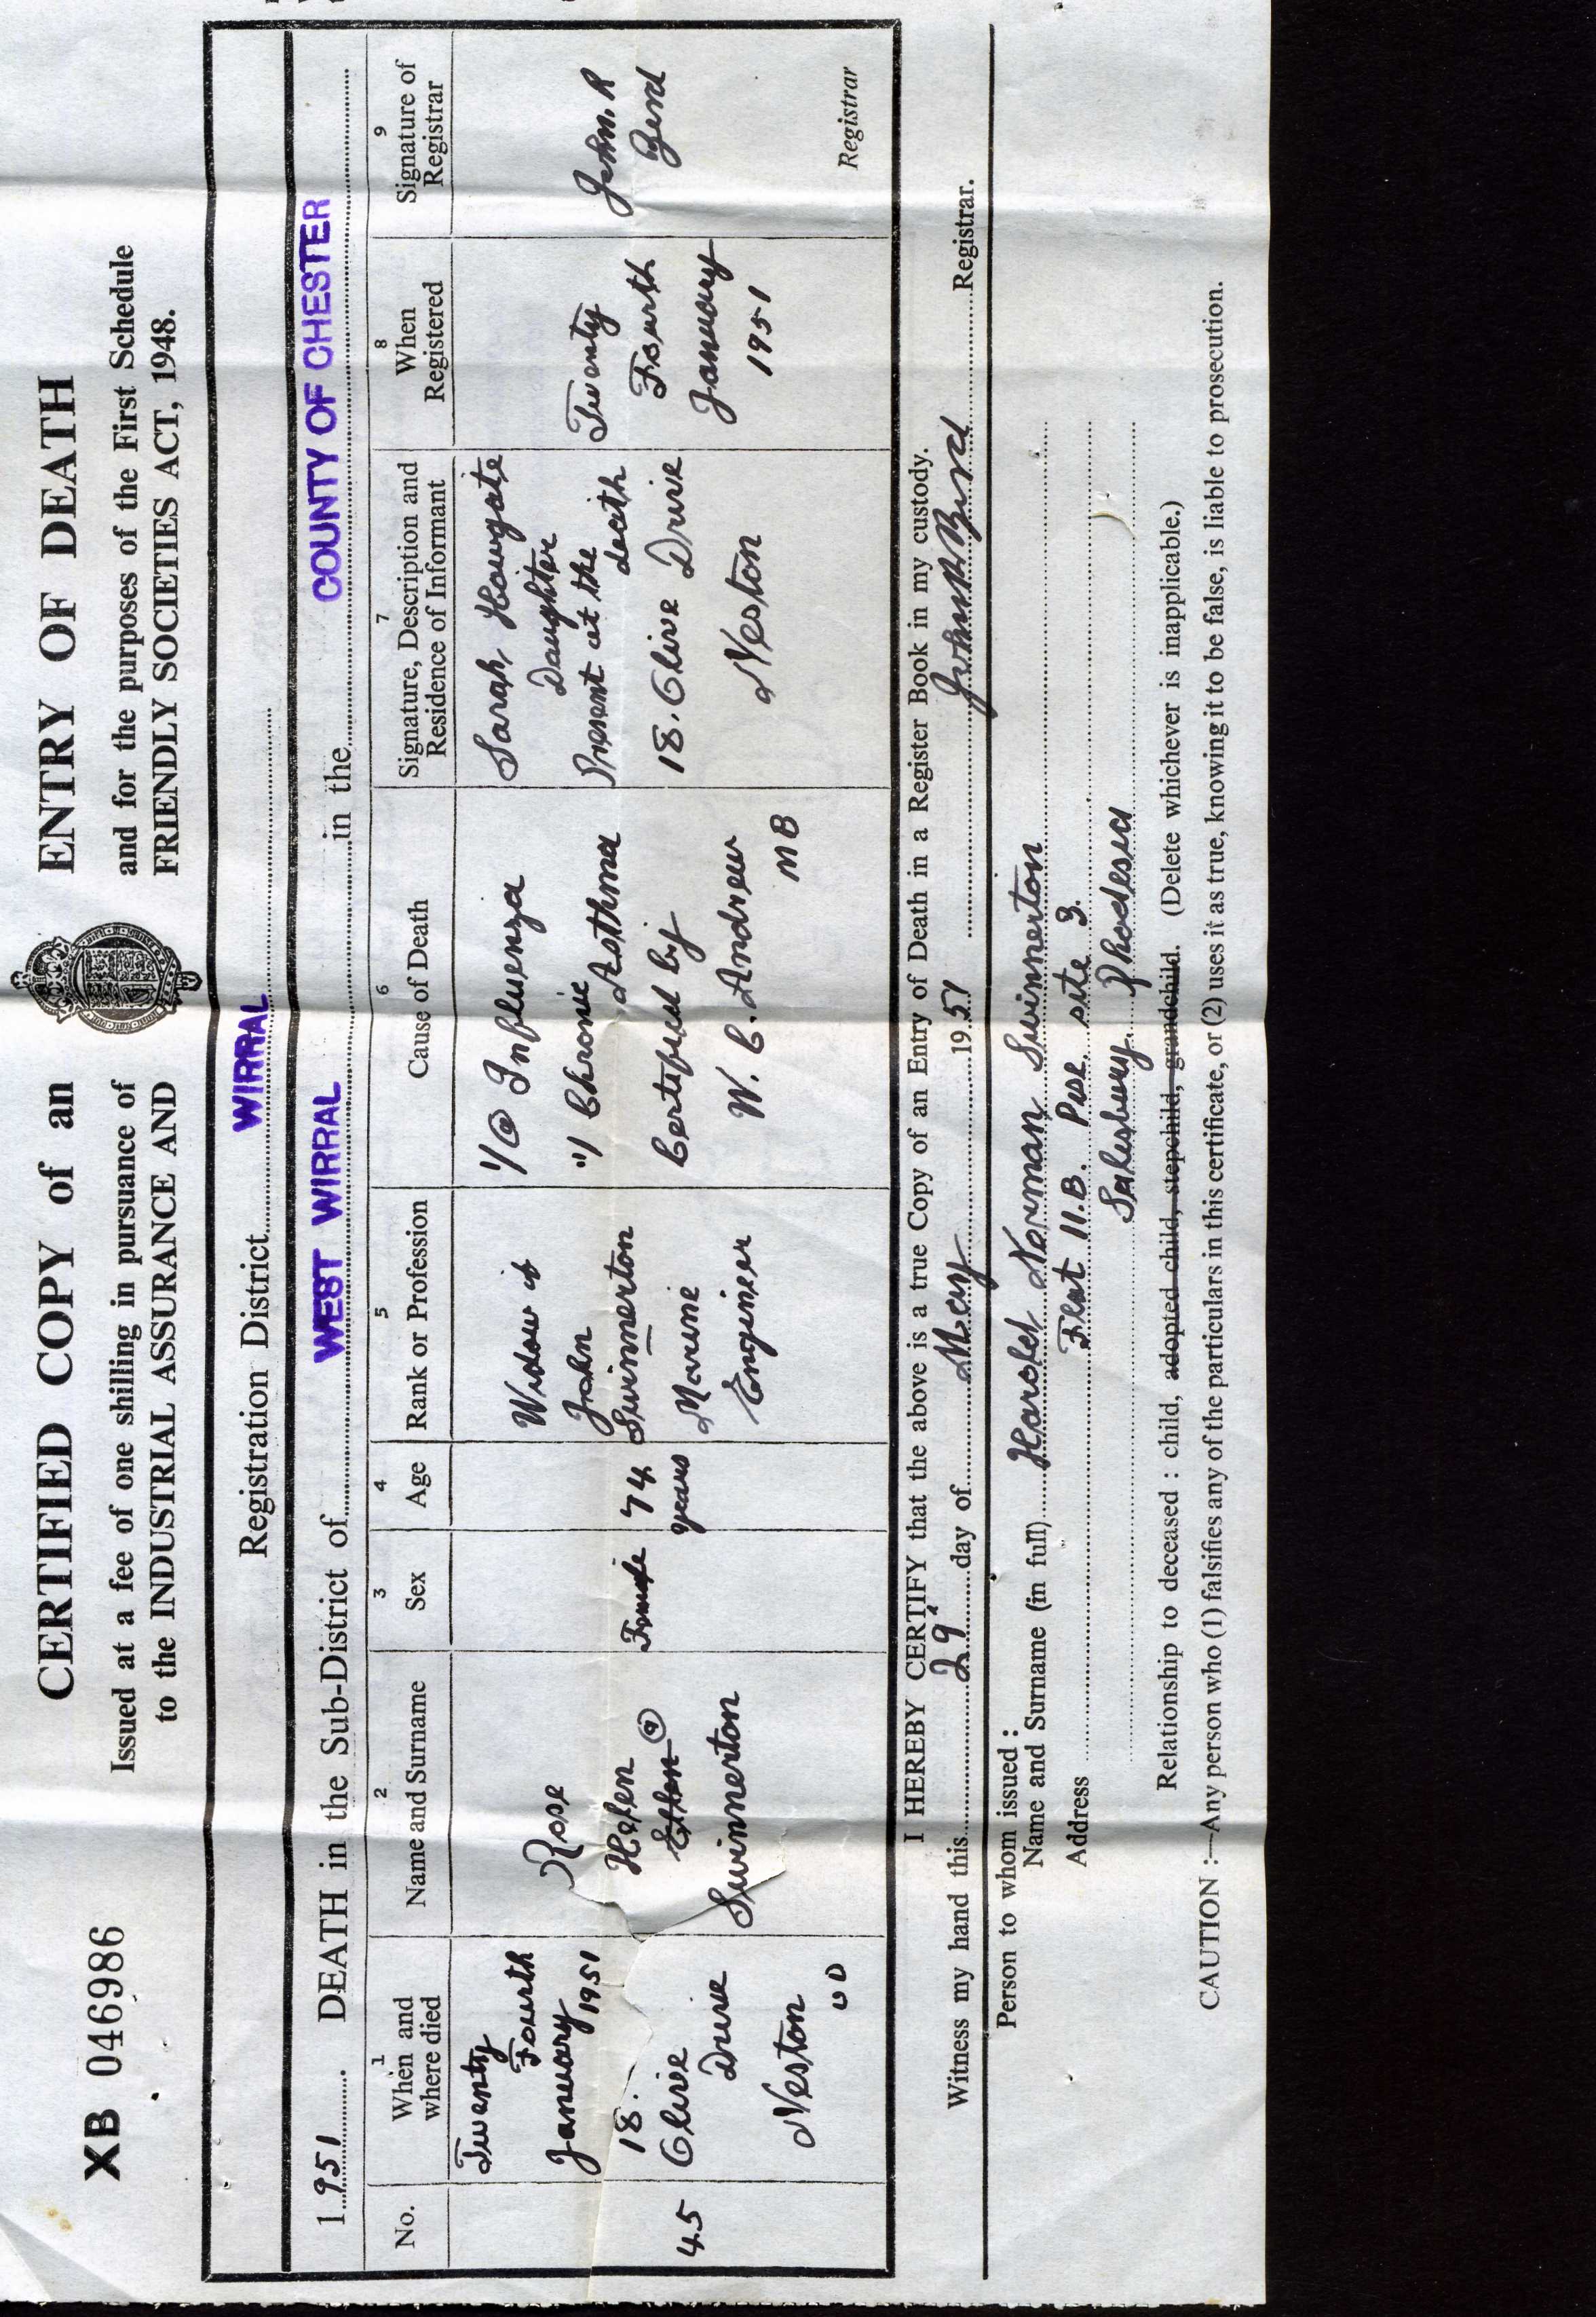 XB 046986
CERTIFIED COPY of an ENTRY OF DEATH
Issued at a fee of one shilling in pursuance of and for the purposes of the First Schedule
to the INDUSTRIAL ASSURANCE AND FRIENDLY SOCIETIES ACT, 1948.
Registration District WIRRAL
1951. DEATH in the Sub-District of WEST WIRRAL in the COUNTY OF CHESTER
No.
1
When and
where died
2
Name and Surname
3
Sex
4
Age
5
Rank or Profession
6
Cause of Death
7
Signature, Description and
Residence of Informant
8
When
Registered
9
Signature of
Registrar
45
Twenty
Fourth
January 1951
18.
Clive
Drive
Neston
UD
Rose
Helen
Ellen
Swinnerton
Female
74
years
Widow of
John
Swinnerton
Marine
Engineer
1/(a) Influenza
11/ Chronic
Asthma
Certified by
W. C. Andrew
MB
Sarah Howgate
Daughter
Present at the
death
18. Clive Drive
Neston
Twenty
Fourth
January
1951
John. R
Bird
Registrar
I HEREBY CERTIFY that the above is a true Copy of an Entry of Death in a Register Book in my custody.
Witness my hand this 29 day of May 1951 John R Bird Registrar.
Person to whom issued :
Name and Surname (in full) Harold Norman Swinnerton
Address Flat 11.B. site 3.
Salisbury Rhodesia
Relationship to deceased : child, adopted child, stepchild, grandchild. (Delete whichever is inapplicable.)
CAUTION :—Any person who (1) falsifies any of the particulars in this certificate, or (2) uses it as true, knowing it to be false, is liable to prosecution.